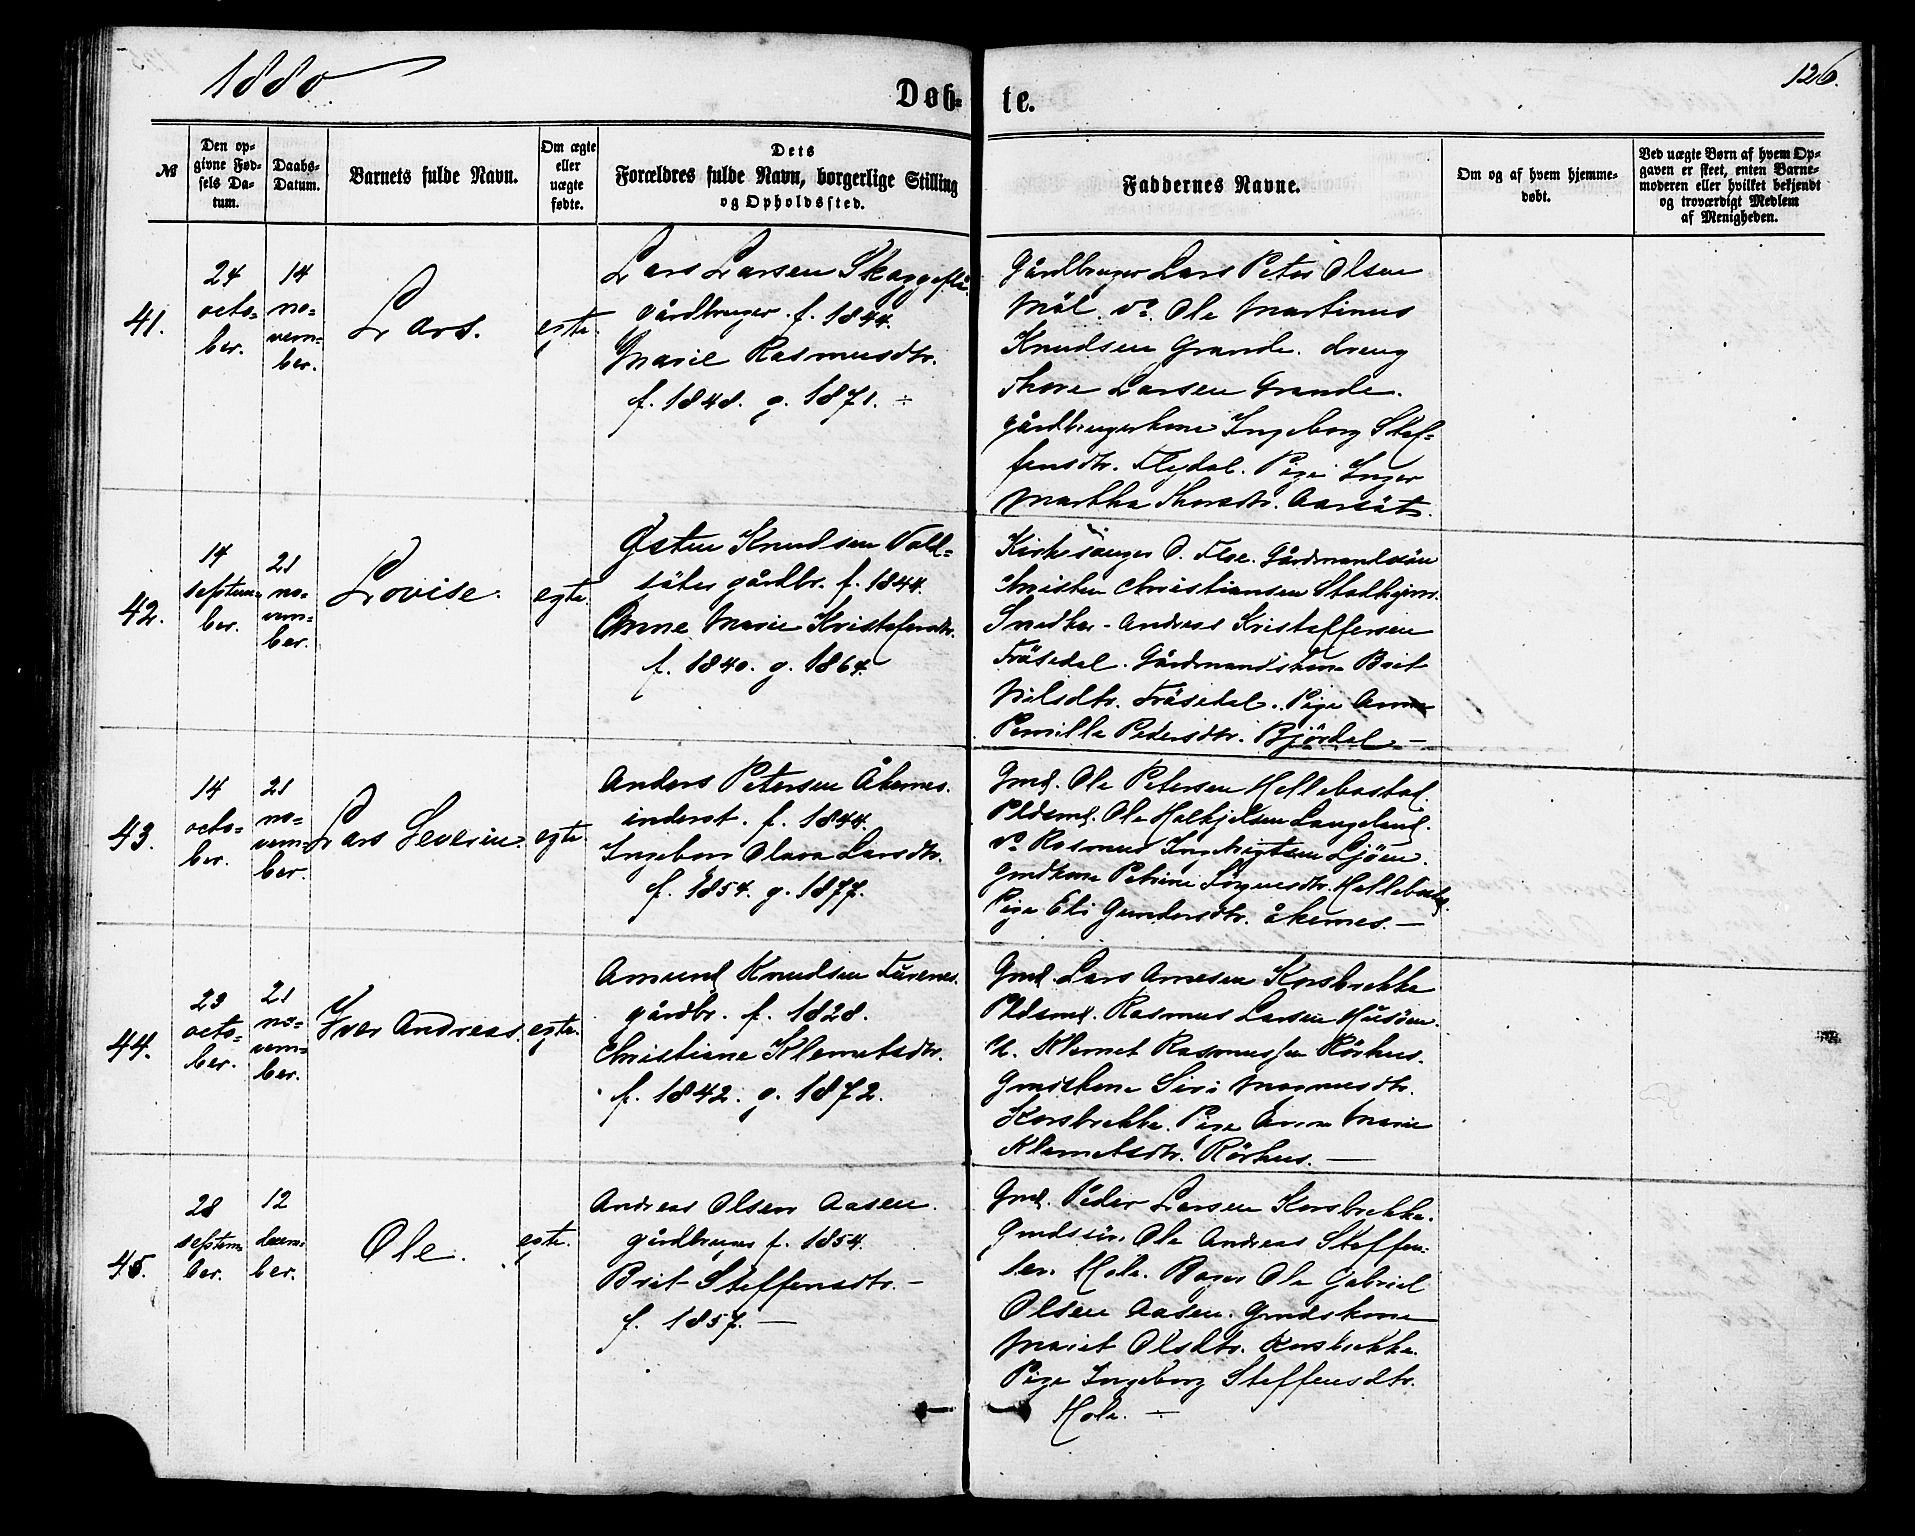 1880
Døb-
te.
126.
№
Den op-
givne Fød-
sels Da-
tum.
Daabs-
Datum.
Barnets fulde Navn.
Om ægte
eller
uægte
fødte.
Dets
Forældres fulde Navn, borgerlige Stilling
og Opholdssted.
Faddernes Navne.
Om og af hvem hjemme-
døbt.
Ved uægte Børn af hvem Op-
gaven er skeet, enten Barne-
moderen eller hvilket bekjendt
og troværdigt Medlem
af Menigheden.
41.
24
octo-
ber.
14
no-
vem-
ber.
Lars.
egte.
Lars Larsen Skaggeflå.
gårdbruger. f. 1844.
Marie Rasmusdtr.
f. 1848. g. 1871. ÷
Gårdbruger Lars Peter Olsen
Möl. do Ole Martinus
Knudsen Grande. dreng
Thore Larsen Grande.
gårdbrugerkone Ingeborg Stef-
fensdtr. Flydal. Pige Inger
Martha Thoredtr. Aarsät.
42.
14
septem-
ber.
21
no-
vem-
ber.
Lovise.
egte.
Østen Knudsen Vold-
säter gårdbr. f. 1844.
Anne Marie Kristofersdtr.
f. 1840. g. 1864.
Kirkesanger O. Floe. Gårdmandssön
Christen Christiansen Stadheim.
Snedker - Andreas Kristoffersen
Fräsedal. Gårdmandskone Brit
Nilsdtr. Fräsedal. Pige Anne
Pernille Pedersdtr. Björdal. —
43.
14
octo-
ber.
21
no-
vem-
ber.
Lars Severin.
egte
Anders Petersen Åkernes.
inderst. f. 1844.
Ingeborg Olava Larsdtr.
f. 1854. g. 1877.
Gmd. Ole Petersen Hellebostad.
Pldsmd. Ole Halkjelsen Langeland.
do Rasmus Ingebrigtsen Ljöen.
Gmdkone Petrine Jörgensdtr. Hellebostad.
Pige Eli Gundersdtr. åkernes. —
44.
23
octo-
ber.
21
no-
vem-
ber.
Iver Andreas.
egte.
Amund Knudsen Furenes.
gårdbr. f. 1828.
Christiane Klemetsdtr.
f. 1842. g. 1872.
Gmd. Lars Arnesen Korsbrekke
Pldsmd. Rasmus Larsen Husöen.
U. Klemet Rasmussen Rörhus.
Gmdskone Siri Magnusdtr.
Korsbrekke. Pige Anne Marie
Klemetsdtr. Rörhus. —
45.
28
septem-
ber.
12
decem-
ber.
Ole.
egte.
Andreas Olsen Aasen.
gårdbruger f. 1854.
Brit Steffensdtr. —
f. 1857. —
Gmd. Peder Larsen Korsbrekke.
Gmdssön. Ole Andreas Steffen-
sen. Hole. Bager Ole Gabriel
Olsen Aasen. Gmdskone
Marit Olsdtr. Korsbrekke.
Pige Ingeborg Steffensdtr.
Hole. —